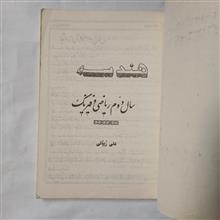 هندسه
سال دوم ریاضی و فیزیک
علی زمانی